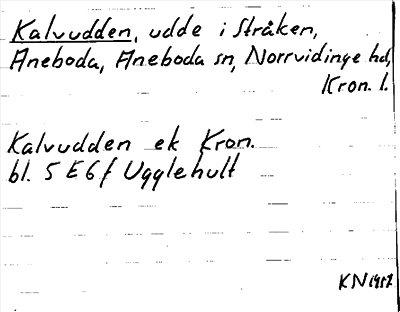 Kalvudden, udde i Stråken,
Aneboda, Aneboda sn, Norrvidinge hd,
Kron. l.
Kalvudden ek Kron.
bl. 5 E 6 f Ugglehult
KN